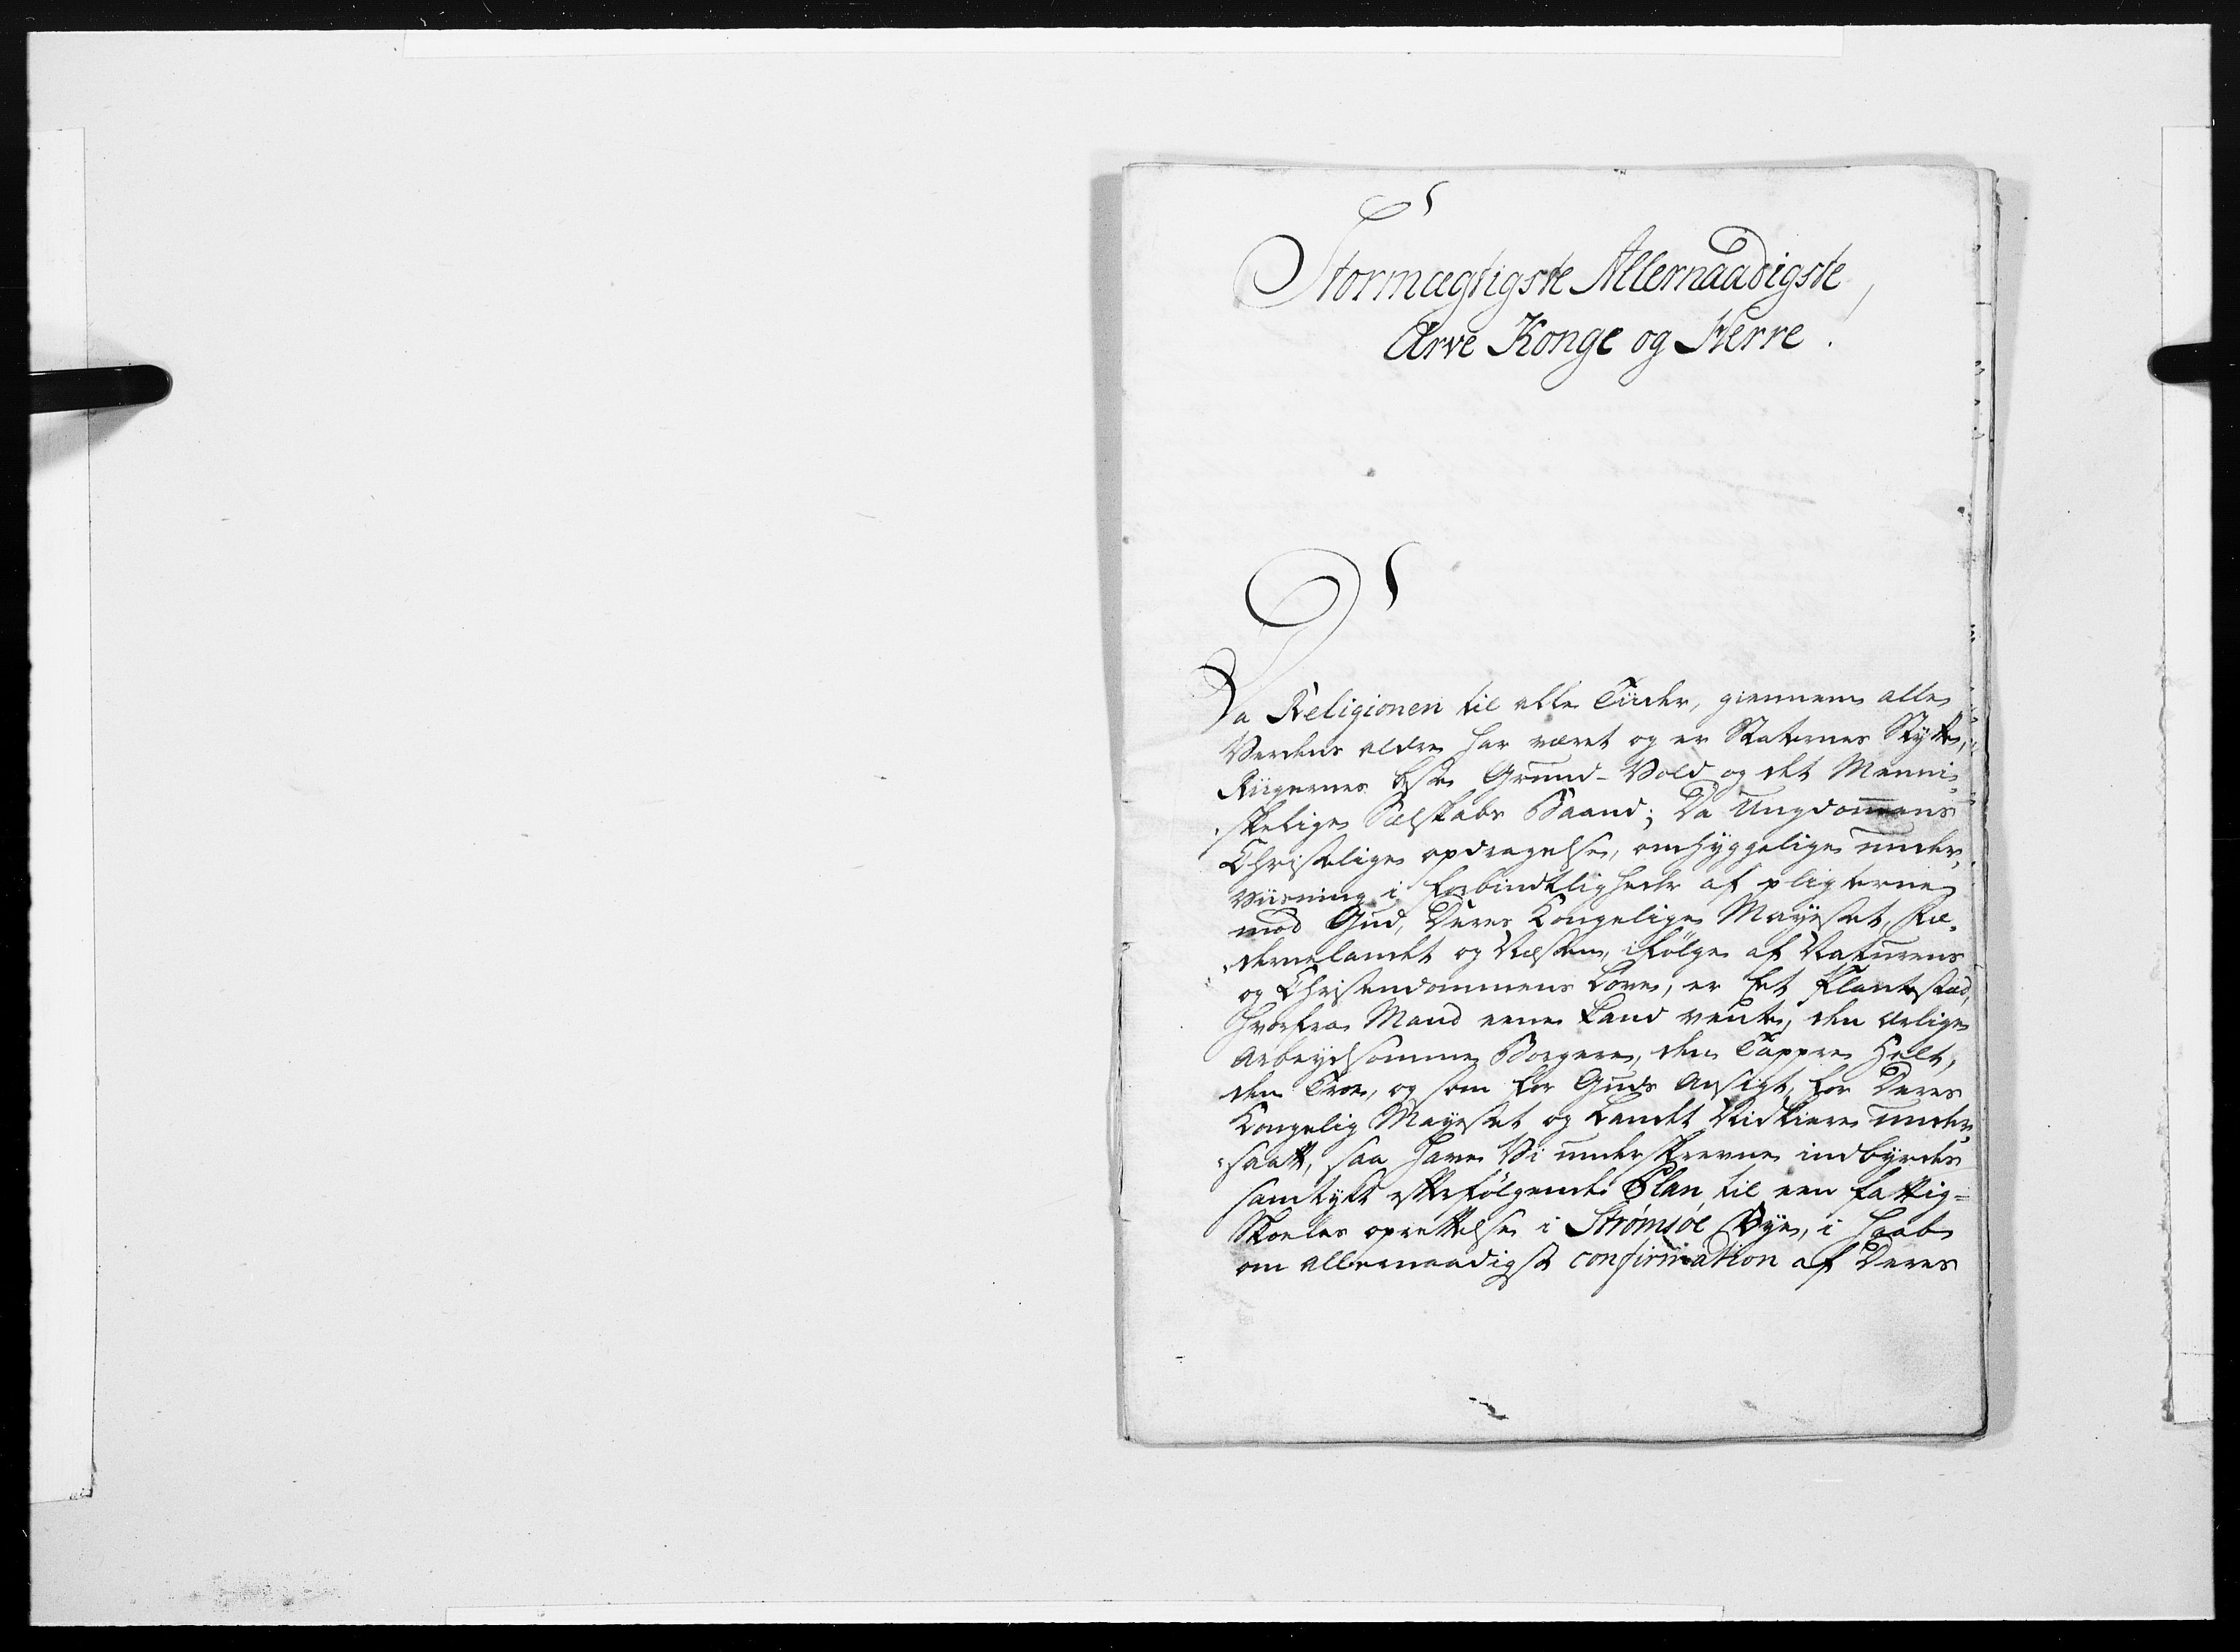 Stormægtigste Allernaadigste,
Arve Konge og Herre.
Da Religionen til alle Tiider, giennem alle
Verdens aldre har været og er Staternes Støtte,
Riigernes beste Grund-Vold og det Menni-
skelige Selskabs Baand; Da Ungdommens
Christelige opdragelse, omhyggelige under-
Viisning i forbindtligheder af pligterne
mod Gud, Deres Kongelige Mayestet, Fæ-
dernelandet og Næsten, ifølge af Naturens
og Christendommens Love, er Et Plantestæd,
hvorfra Mand eene kand vente, den ærlige
arbeydsomme Borgere, den Tappre Helt,
den Troe, og som for Guds ansigt, for Deres
Kongelig Mayestet og Landet Nidkiere under-
saatt, saa have Vi underskrevne indbyrdes
samtykt efterfølgende Plan til een fattig-
Skoeles oprettelse i Strømsøe Bye, i haab
om allernaadigst confirmation af Deres